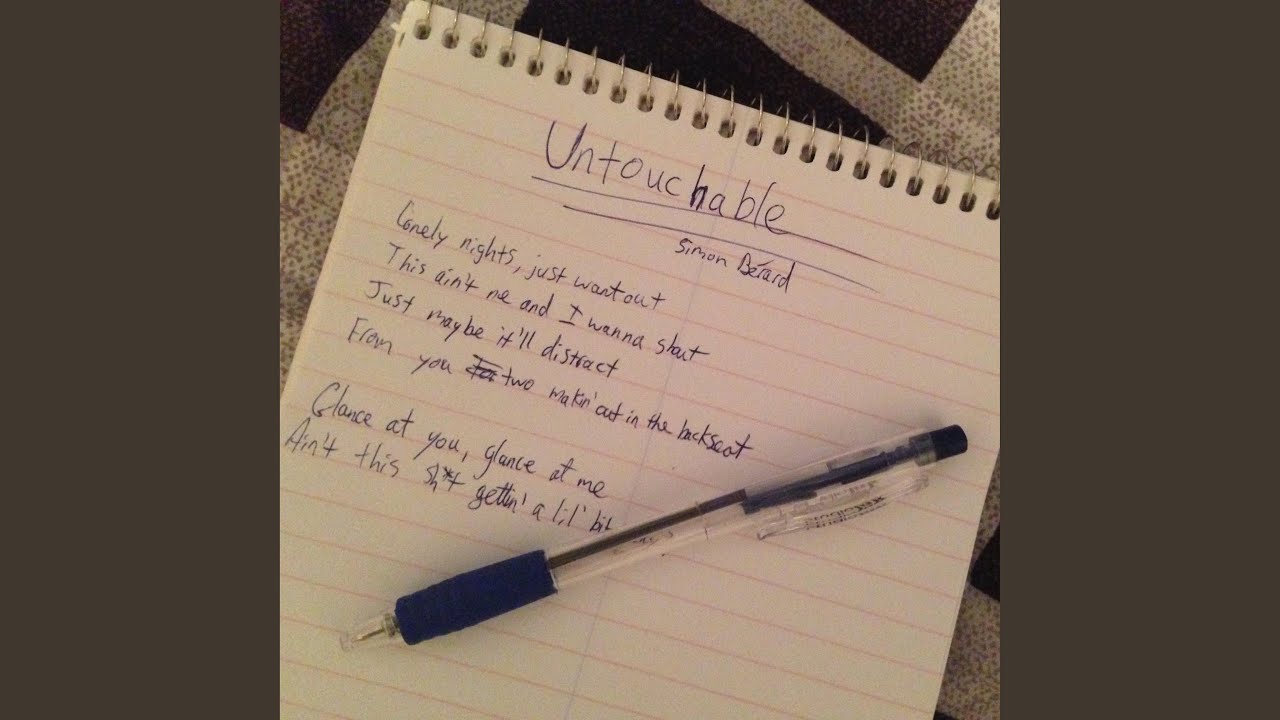 Untouchable
Simon Bérard
Lonely nights, just want out
This ain't me and I wanna shout
Just maybe it'll distract
From you two makin' out in the backseat
Glance at you, glance at me
Ain't this sh*t gettin' a lil' bit